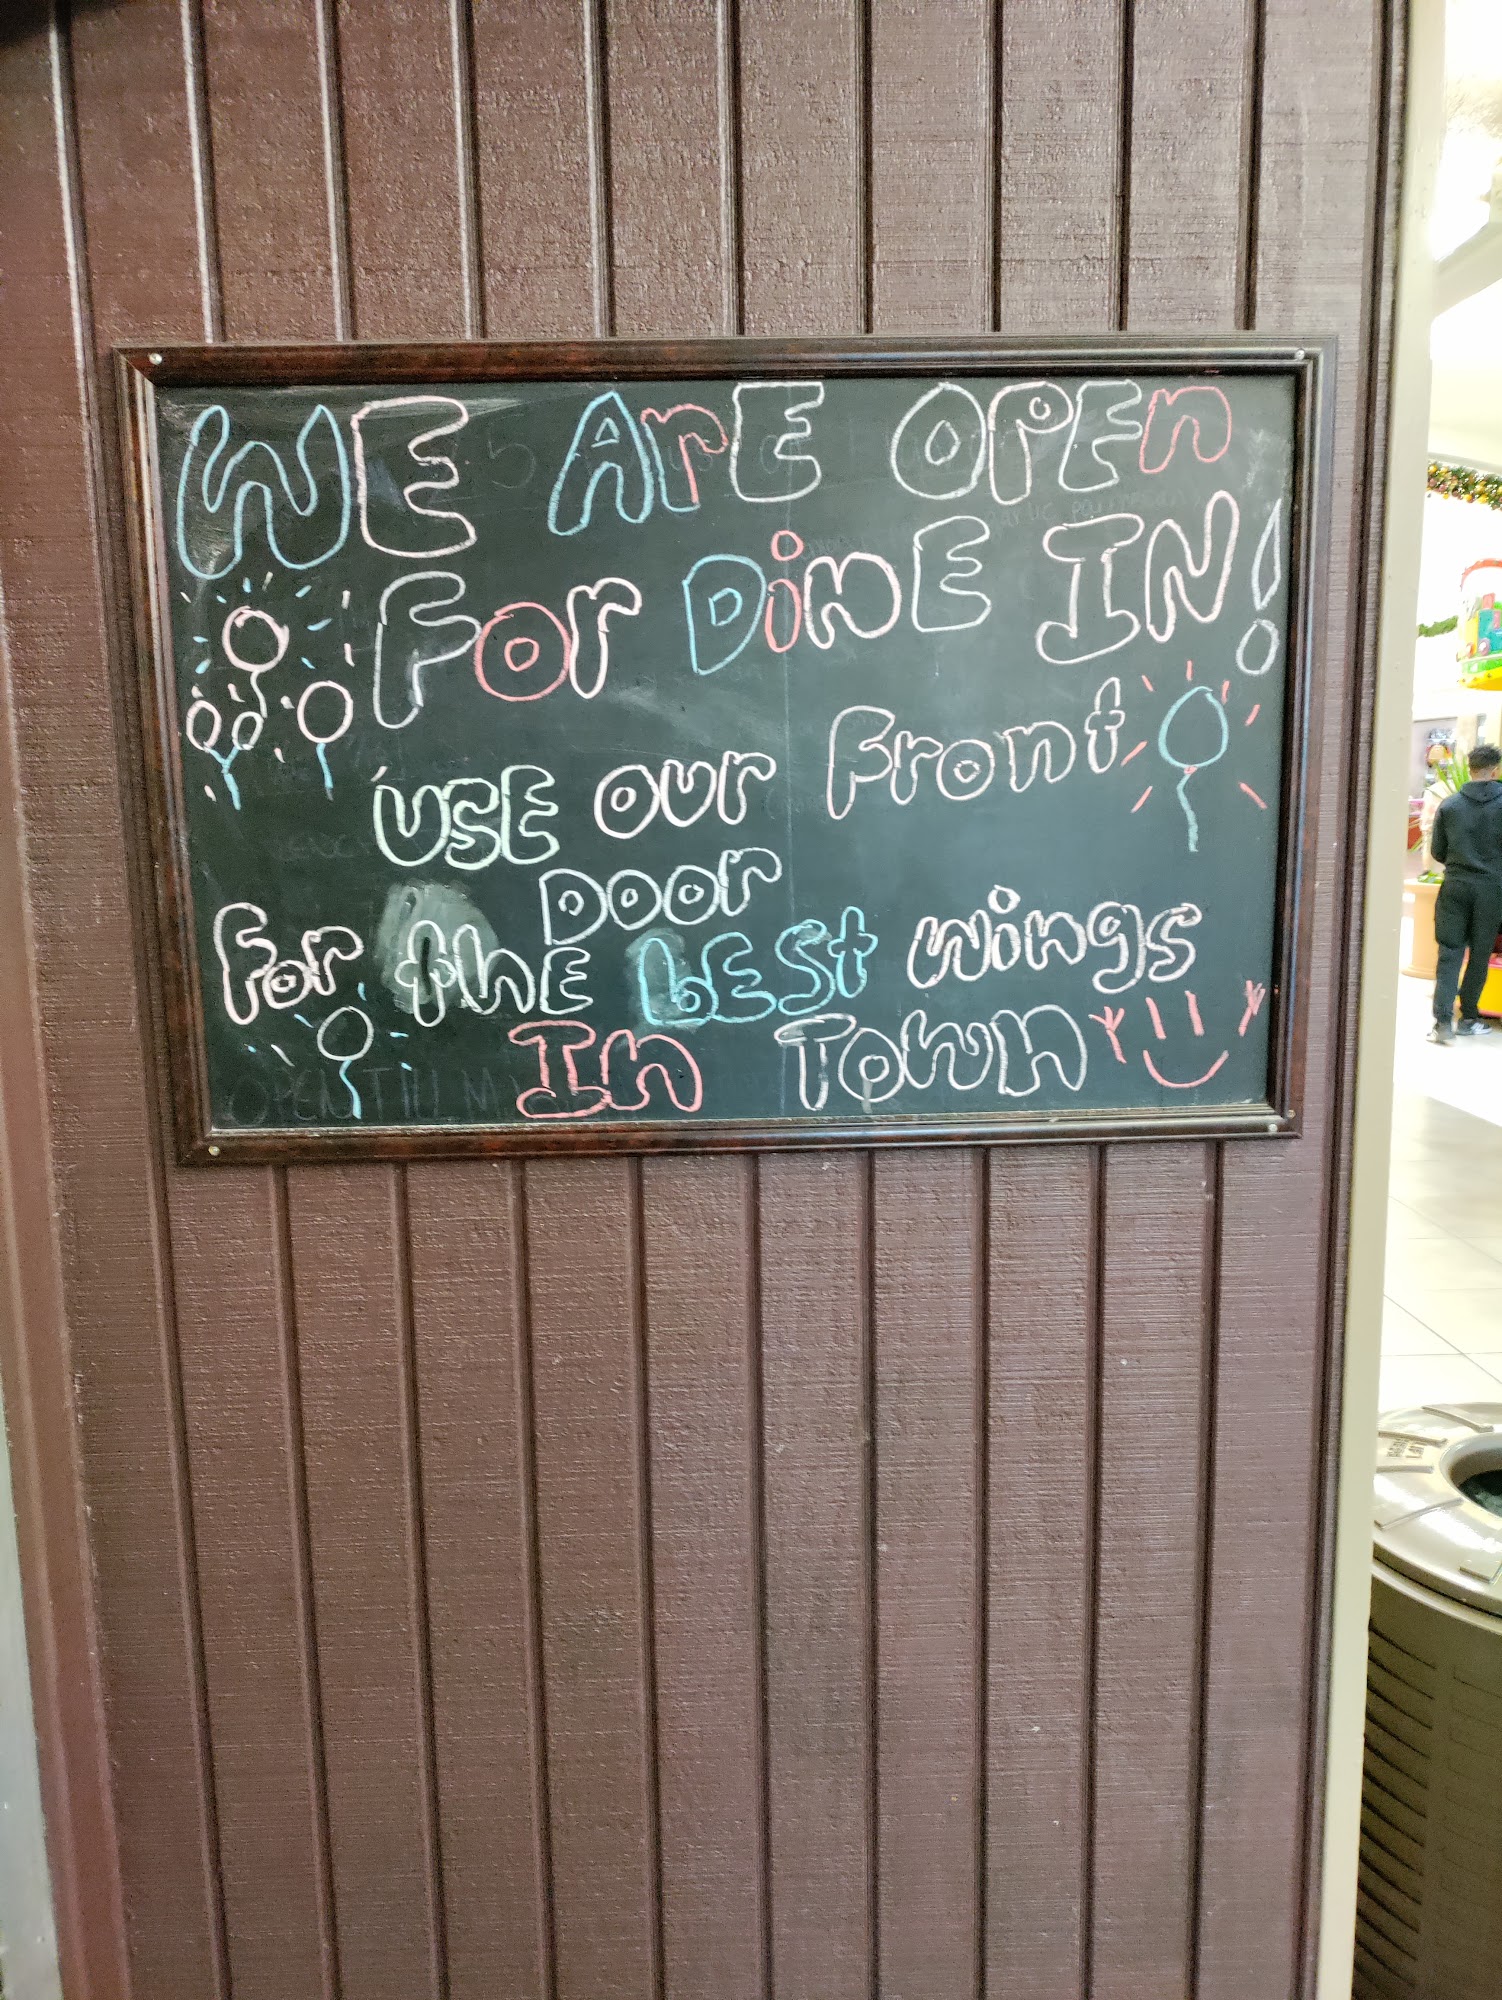 WE ArE OPEn
For DinE IN!
USE our Front
Door
For the bESt wings
In Town
OPEN TILL